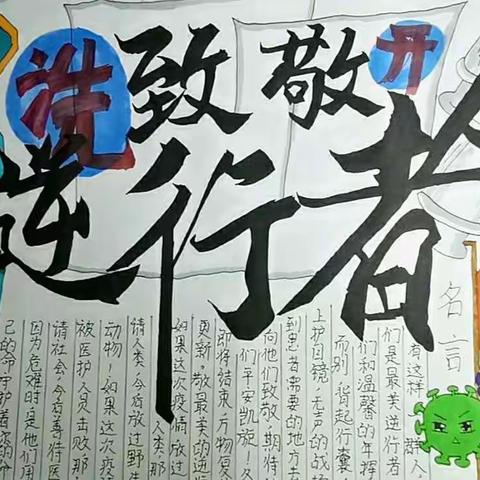 致敬
逆行者
洗
开
名言
有这样 群人，
们是最美逆行者
们和温馨的年挥
而别，背起行囊
上护目镜，无声的战场
到患者需要的地方去
向他们致敬，期待
们平安凯旋！
即将结束，万物复
更新，敬最美的逆行
如果这次疫情，放过
人类，那
请人类，今后放过野生
动物！如果这次疫
被医护人员击败，那
请社会，今后善待医
因为危难时，是他们用
己的命守护着你的命